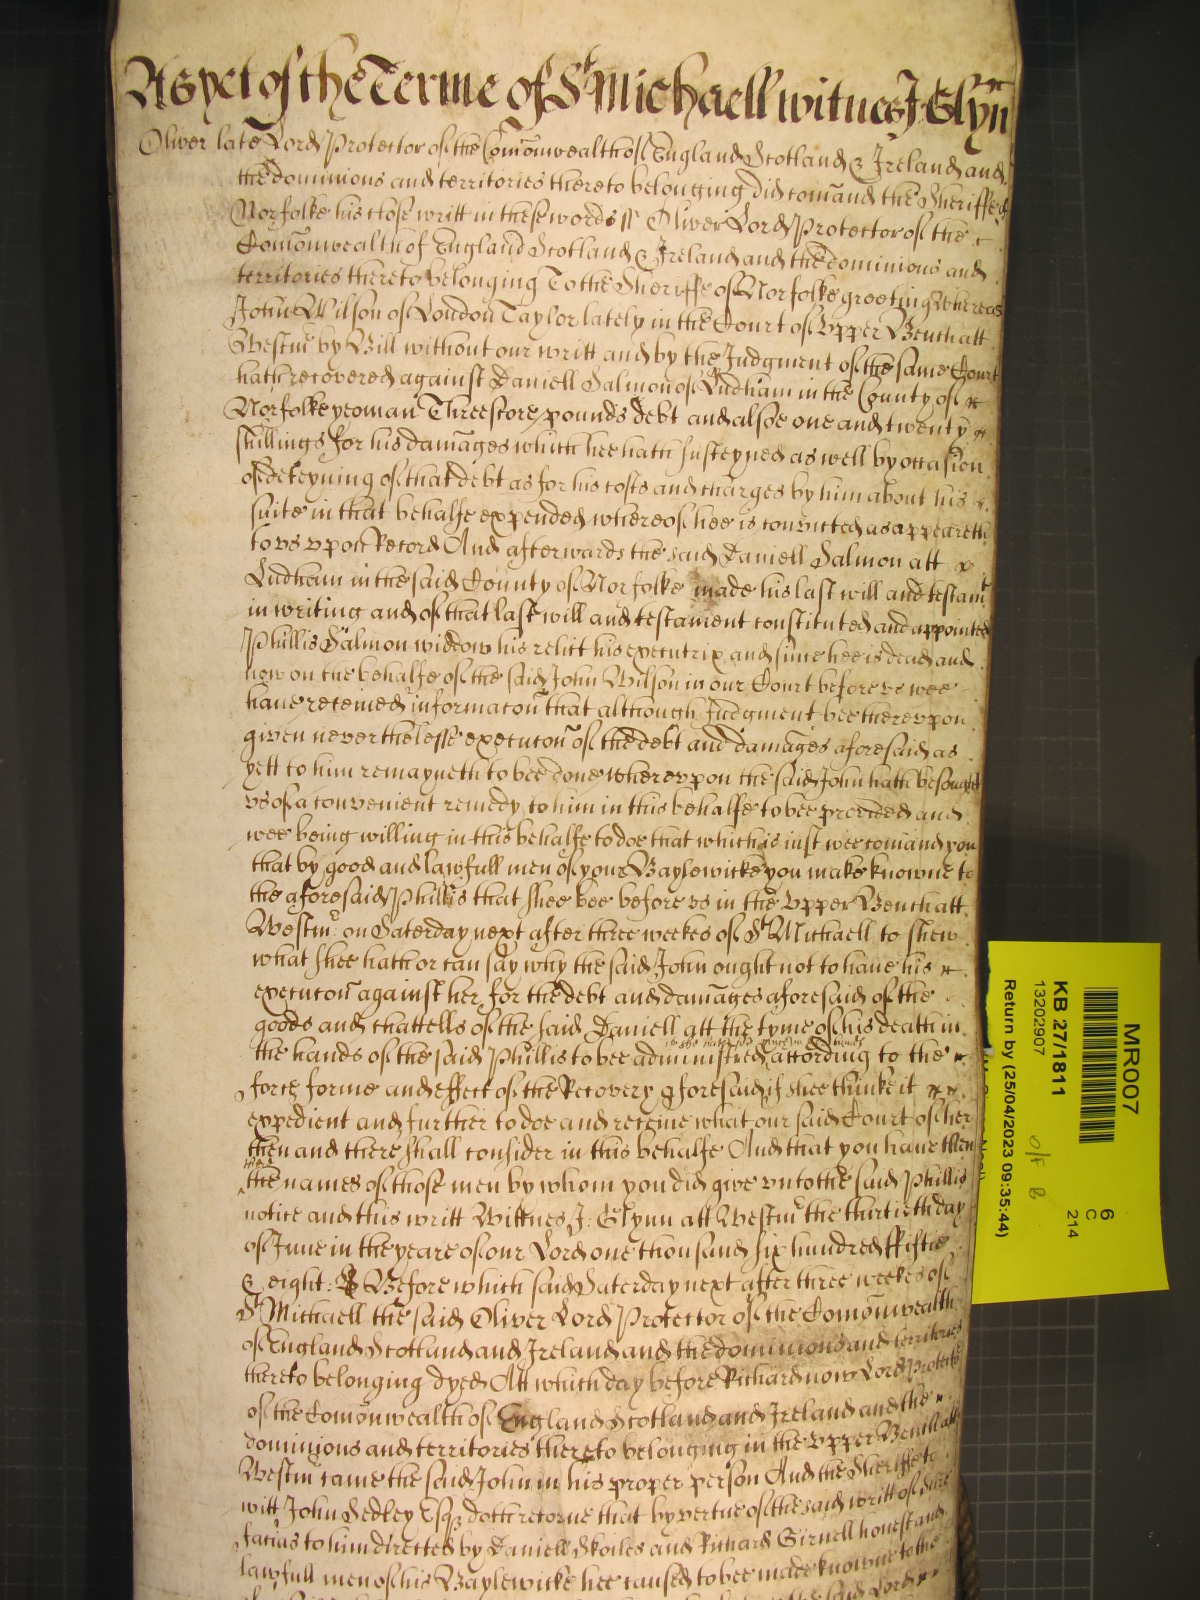 As yet of the Terme of St Michaell witnes J Glyn
Oliver late Lord Protector of the Comonwealth of England Scotland & Ireland and
the dominions and territories thereto belonging did comand the Sheriffe of
Norfolke his close writt in these words ss Oliver Lord Protector of the
Comonwealth of England Scotland & Ireland and the dominions and
territories thereto belonging To the Sheriffe of Norfolke greeting Whereas
John Wilson of London Taylor lately in the Court of Vpper Bench att
Westmr by Bill without our writt and by the Judgment of the same Court
hath recovered against Daniell Salmon of Ludham in the County of
Norfolke yeoman Threescore pounds debt and alsoe one and twenty
shillings for his damages which hee hath susteyned as well by occasion
of deteyning of that debt as for his costs and charges by him about his
suite in that behalfe expended whereof hee is convicted as appeareth
to vs vpon Record And afterwards the said Daniell Salmon att
Ludham in the said County of Norfolke made his last will and testamt
in writing and of that last will and testament constituted and appointed
Phillis Salmon widdow his relict his executrix and since hee is dead and
now on the behalfe of the said John Wilson in our Court before vs wee
haue receiued informacon that although Judgment bee therevpon
given neverthelesse execucon of the debt and damages aforesaid as
yett to him remayneth to bee done wherevpon the said John hath besought
vs of a convenient remedy to him in this behalfe to bee provided and
wee being willing in this behalfe to doe that which is iust wee comand you
that by good and lawfull men of your Baylewicke you make knowne to
the aforesaid Phillis that shee bee before vs in the Vpper Bench att
Westmr on Saterday next after three weekes of St Michaell to shew
what shee hath or can say why the said John ought not to haue his
execucon against her for the debt and damages aforesaid of the
goods and chattells of the said Daniell att the tyme of his death in
the hands of the said Phillis to bee administred according to the
force forme and effect of the Recovery aforesaid if shee thinke it
expedient and further to doe and receiue what our said Court of her
then and there shall consider in this behalfe And that you haue then
there
the names of those men by whom you did give vnto the said Phillis
notice and this writt Wittnes J: Glynn att Westmr the thirtieth day
of June in the yeare of our Lord one thousand six hundred ffiftie
& eight: Before which said Saterday next after three weekes of
St Michaell the said Oliver Lord Protector of the Comonwealth
of England Scotland and Ireland and the dominions and territories
thereto belonging dyed Att which day before Richard now Lord Protector
of the Comonwealth of England Scotland and Ireland and the
dominions and territories thereto belonging in the Vpper Bench att
Westmr came the said John in his proper person And the Sheriffe to
witt John Sedley Esqr doth retorne that by vertue of the said writt of Scire
facias to him directed by Daniell Skoiles and Richard Girnell honest and
lawfull men of his Baylewicke hee caused to bee made knowne to the
MR007
6
C
214
KB 27/1811
13202907
Return by (25/04/2023 09:35:44)